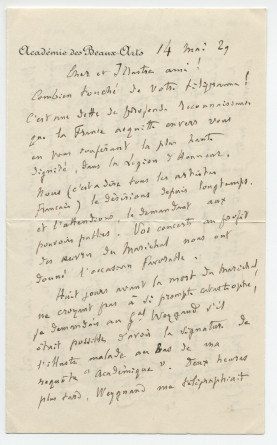 Académie des Beaux-Arts 14 mai 29
Cher et Illustre ami !
Combien touché de votre télégramme !
C'est une dette de profonde reconnaissance
que la France acquitte envers vous
en vous conférant la plus haute
dignité, dans la Légion d'Honneur.
Nous (c'est à dire tous les artistes
français) le désirions depuis longtemps.
et l'attendions, le demandant aux
pouvoirs publics. Vos concerts au profit
des œuvres du Maréchal nous ont
donné l'occasion favorable.
Huit jours avant la mort du Maréchal,
ne croyant pas à si prompte catastrophe,
je demandais au Gal Weygand s'il
était possible d'avoir la signature de
l'illustre malade au bas de ma
requête "Académique". Deux heures
plus tard, Weygand me télégraphiait